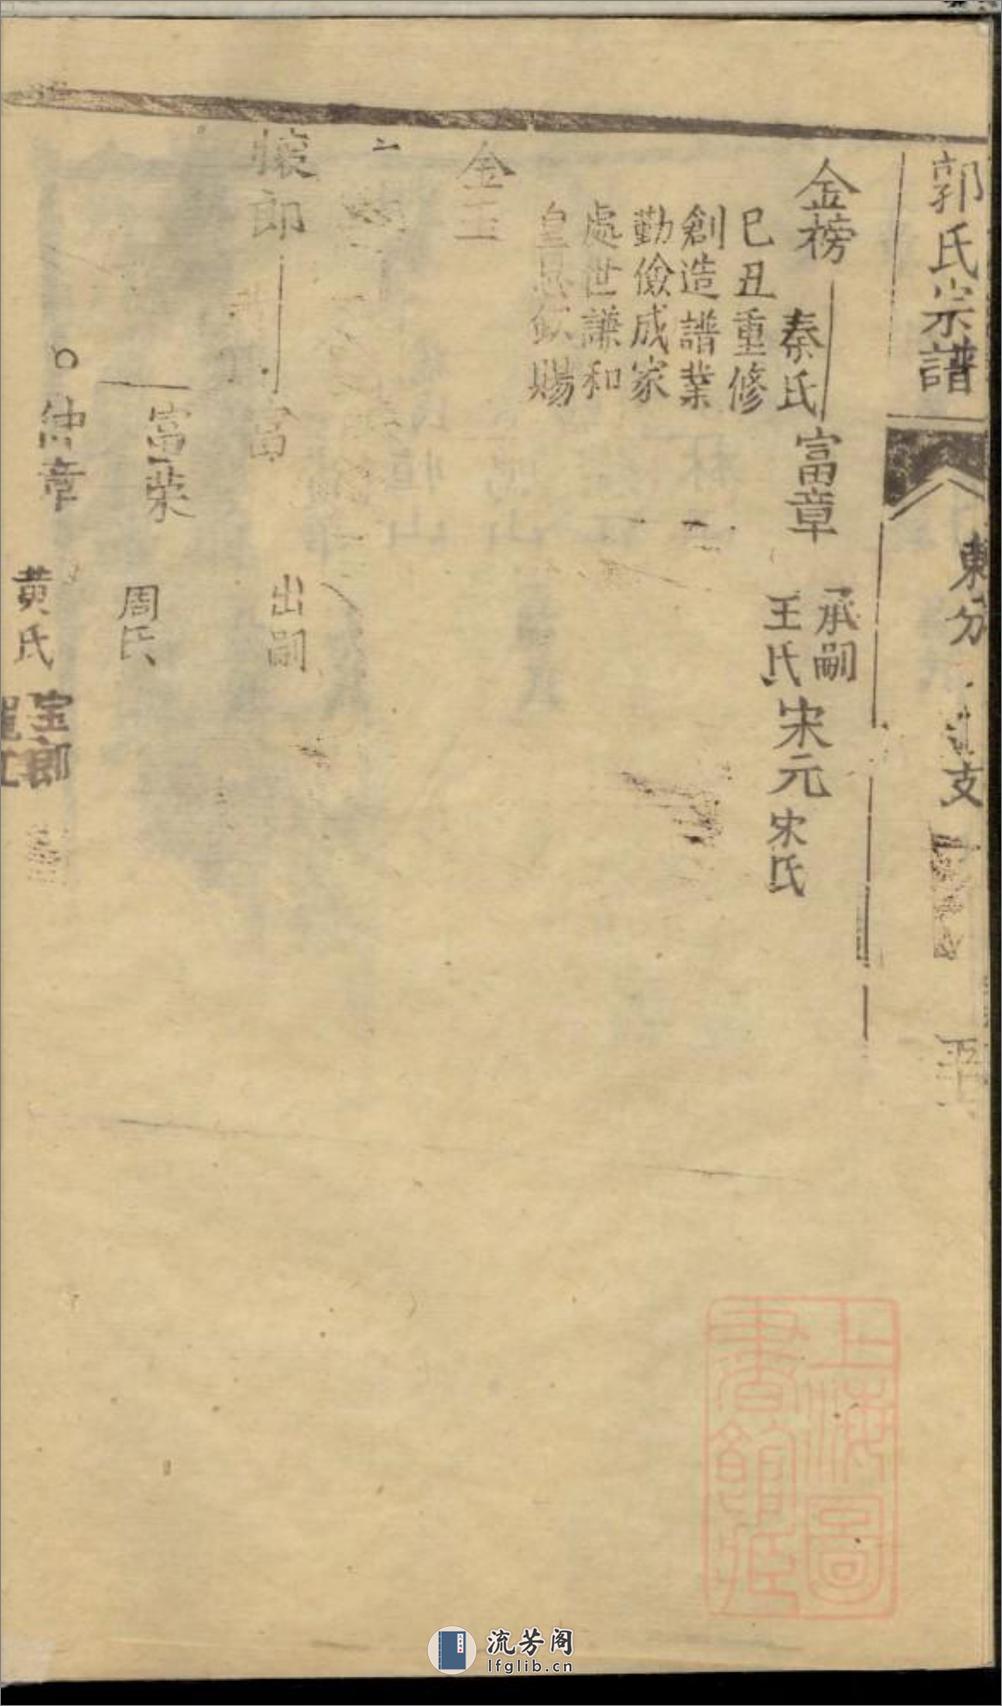 郭氏宗譜
東分
支
金榜
秦氏
巳丑重修
創造譜業
勤儉成家
處世謙和
皇恩欽賜
富章
承嗣
王氏
宋元
宋氏
金玉
懷郎
富
出嗣
富荣
周氏
仲章
黄氏
宝郎
上海圖
書館藏
流芳阁
lfglib.cn